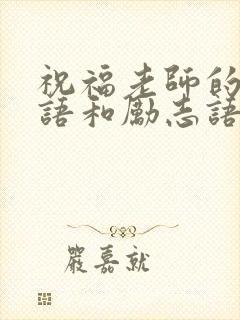 祝福老師的
語和勵志語
嚴嘉就